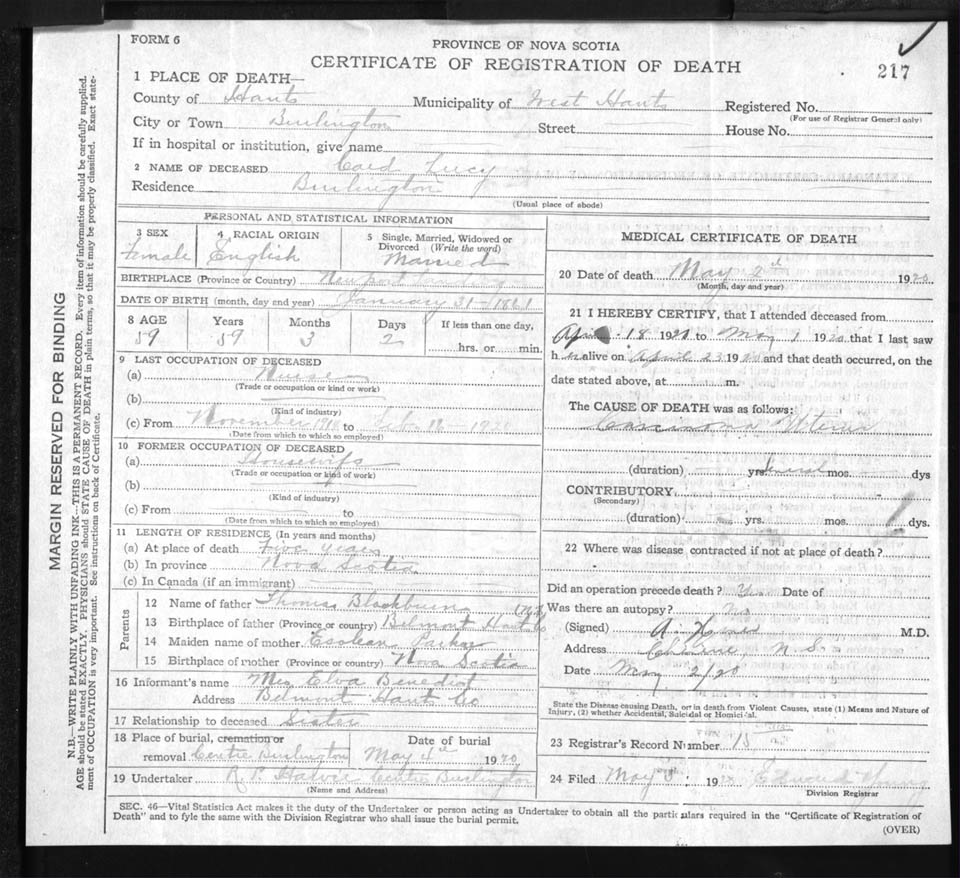 FORM 6
PROVINCE OF NOVA SCOTIA
CERTIFICATE OF REGISTRATION OF DEATH
217
1 PLACE OF DEATH—
County of Hants Municipality of West Hants Registered No.
(For use of Registrar General only)
City or Town Burlington Street House No.
If in hospital or institution, give name
2 NAME OF DECEASED Lucy
Residence Burlington
(Usual place of abode)
PERSONAL AND STATISTICAL INFORMATION
3 SEX 4 RACIAL ORIGIN 5 Single, Married, Widowed or Divorced (Write the word)
Female English Married
BIRTHPLACE (Province or Country) Newport
DATE OF BIRTH (month, day and year) January 31 - 1861
8 AGE Years Months Days If less than one day,
59 59 3 2 hrs. or min.
9 LAST OCCUPATION OF DECEASED
(a) Nurse
(Trade or occupation or kind of work)
(b)
(Kind of industry)
(c) From November to
(Date from which to which so employed)
10 FORMER OCCUPATION OF DECEASED
(a) Housewife
(Trade or occupation or kind of work)
(b)
(Kind of industry)
(c) From to
(Date from which to which so employed)
11 LENGTH OF RESIDENCE (In years and months)
(a) At place of death years
(b) In province Nova Scotia
(c) In Canada (if an immigrant)
Parents
12 Name of father Thomas Blackburn
13 Birthplace of father (Province or country) Belmont Hants Co
14 Maiden name of mother Parker
15 Birthplace of mother (Province or country) Nova Scotia
16 Informant's name Mrs Elva Benedict
Address Belmont Hants Co
17 Relationship to deceased Sister
18 Place of burial, cremation or Date of burial
removal Centre Burlington May 4th 1920
19 Undertaker Centre Burlington
(Name and Address)
MEDICAL CERTIFICATE OF DEATH
20 Date of death May 2nd 1920
(Month, day and year)
21 I HEREBY CERTIFY, that I attended deceased from
April 18 1920 to May 1 1920 that I last saw
h er alive on April 23 1920 and that death occurred, on the
date stated above, at m.
The CAUSE OF DEATH was as follows:
Carcinoma Uterus
(duration) yrs. several mos. dys
CONTRIBUTORY
(Secondary)
(duration) yrs. mos. dys.
22 Where was disease contracted if not at place of death?
Did an operation precede death? Yes Date of
Was there an autopsy? No
(Signed) M.D.
Address N.S.
Date May 2/20
State the Disease causing Death, or in death from Violent Causes, state (1) Means and Nature of
Injury, (2) whether Accidental, Suicidal or Homicidal.
23 Registrar's Record Number 15
24 Filed May 1920 Edward Young
Division Registrar
SEC. 46—Vital Statistics Act makes it the duty of the Undertaker or person acting as Undertaker to obtain all the particulars required in the "Certificate of Registration of
Death" and to fyle the same with the Division Registrar who shall issue the burial permit.
(OVER)
MARGIN RESERVED FOR BINDING
N.B.—WRITE PLAINLY WITH UNFADING INK—THIS IS A PERMANENT RECORD. Every item of information should be carefully supplied.
AGE should be stated EXACTLY. PHYSICIANS should STATE CAUSE OF DEATH in plain terms, so that it may be properly classified. Exact state-
ment of OCCUPATION is very important. See instructions on back of Certificate.